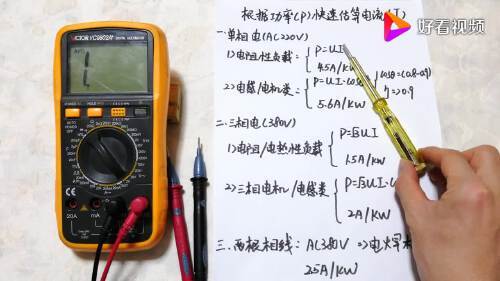 好看视频
根据功率(P)快速估算电流(I)
一.单相电(AC220V)
1)电阻性负载: P=UI
4.5A/KW
2)电感/电机类: P=UI·cosø
cosø=(0.8-0.9)
η=>0.9
5.6A/KW
二.三相电(380V)
1)电阻/电热性负载 P=√3UI
1.5A/KW
2)三相电机/电感类 P=√3UI·
2A/KW
三.两根相线: AC380V =>电火焊
2.5A/KW
VICTOR VC9802A+
POWER
HOLD
20A
mA
CE